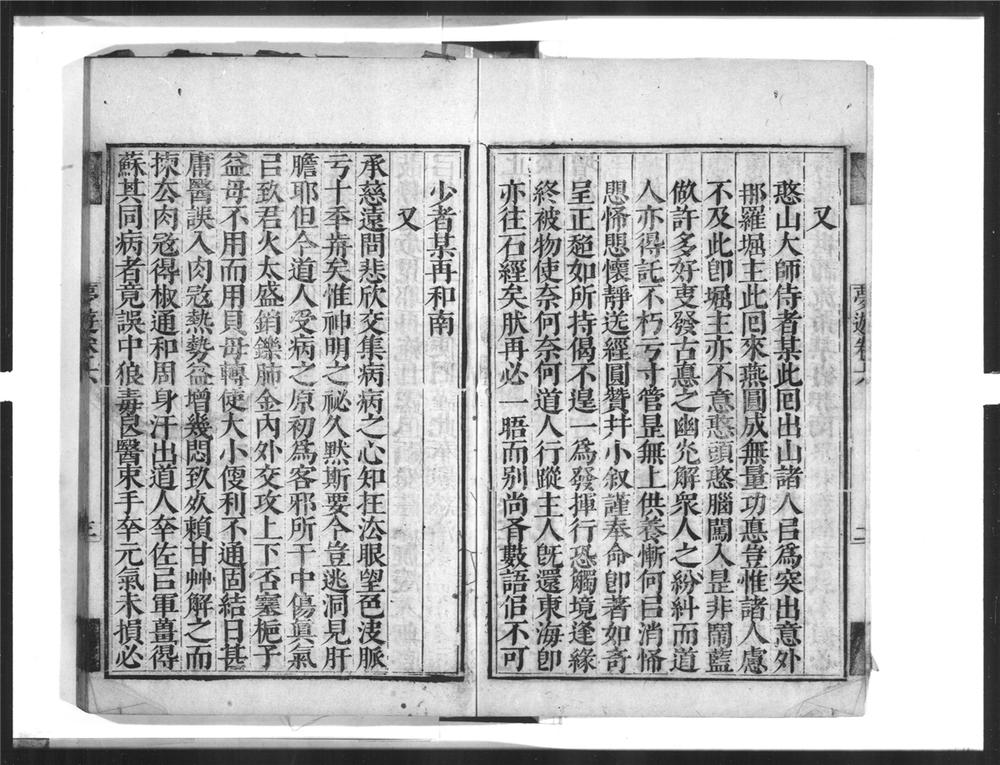 又
憨山大師侍者某此囘出山諸人㠯爲突出意外
那羅堀主此囘來燕圓成無量功悳豈惟諸人慮
不及此卽堀主亦不意憨頭憨腦闖入是非鬧藍
做許多好事發古悳之幽光解衆人之紛糾而道
人亦得託不朽亏寸管是無上供養慚何㠯消悕
悤悕悤懷靜送經圓贊幷小叙謹奉命卽著如奇
呈正𥡴如所持偈不遑一爲發揮行恐觸境逢緣
終被物使奈何奈何道人行蹤主人旣還東海卽
亦往石經矣肰再必一晤而別尚吝數語佀不可
少者某再和南
又
承慈遠問悲欣交集病病之心知抂㳒眼望色浸脈
亏十秊歬矣惟神明之祕久默斯要今豈逃洞見肝
膽耶但今道人受病之原初爲客邪所干中傷眞氣
㠯致君火太盛銷鑠肺金內外交攻上下否塞梔子
益母不用而用貝母轉使大小便利不通固結日甚
庸醫誤入肉寇熱勢益增幾悶致𣦸賴甘艸解之而
揀去肉寇得椒通和周身汗出道人卒佐㠯軍薑得
蘇其同病者竟誤中狼毒良醫束手卒元氣未損必
夢遊卷六
二
夢遊卷六
三